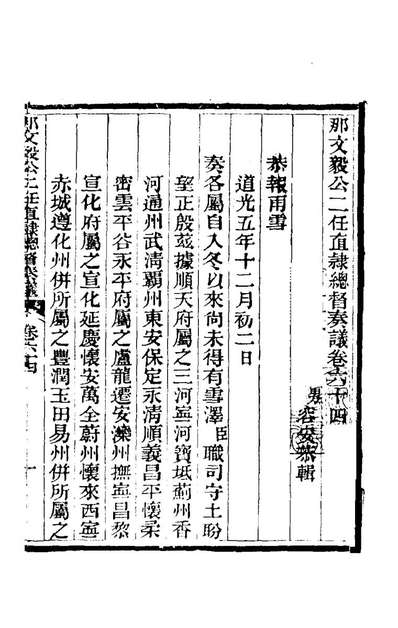 那文毅公二任直隸總督奏議卷六十四
男容安恭輯
恭報雨雪
道光五年十二月初二日
奏各屬自入冬以來尚未得有雪澤臣職司守土盼
望正殷茲據順天府屬之三河寧河寶坻薊州香
河通州武清霸州東安保定永清順義昌平懷柔
密雲平谷永平府屬之盧龍遷安灤州撫寧昌黎
宣化府屬之宣化延慶懷安萬全蔚州懷來西寧
赤城遵化州併所屬之豐潤玉田易州併所屬之
那文毅公二任直隸總督奏議 卷六十四 一